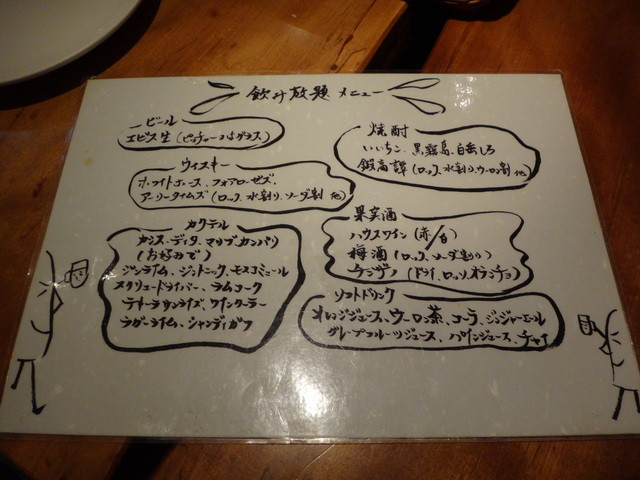 飲み放題 メニュー
ビール
エビス生(ピッチャー or グラス)
焼酎
いいちこ、黒霧島、白岳しろ
鍛高譚(ロック、水割り、ウーロン割 他)
ウィスキー
ホワイトホース、フォアローゼズ、
アーリータイムズ(ロック、水割り、ソーダ割 他)
カクテル
カシス・ディタ、マリブ、カンパリ
(お好みで)
ジンライム、ジントニック、モスコミュール
スクリュードライバー、ラムコーク
テキーラサンライズ、ワインクーラー
ラガーライム、シャンディガフ
果実酒
ハウスワイン(赤/白)
梅酒(ロック、ソーダ割り)
チンザノ(ドライ、ロッソ、オランチョ)
ソフトドリンク
オレンジジュース、ウーロン茶、コーラ、ジンジャーエール
グレープフルーツジュース、パインジュース、チャイ